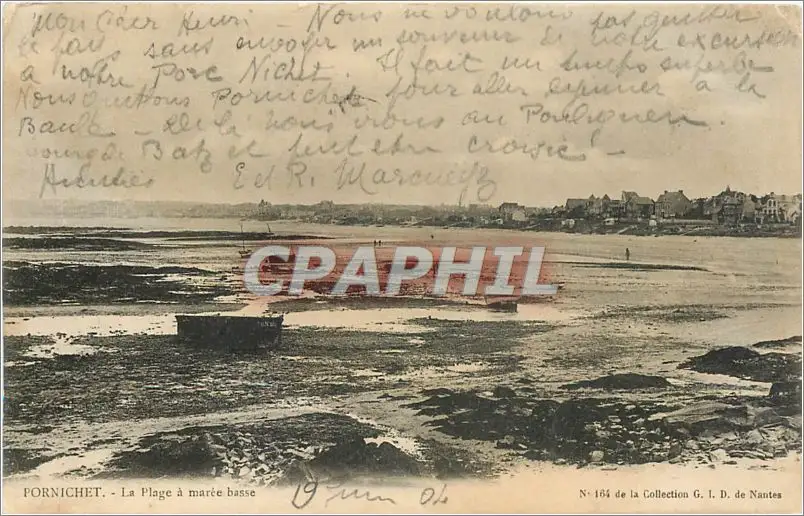 Mon cher Henri - Nous ne voulons pas quitter
le pays sans envoyer un souvenir de notre excursion
à notre Porc Nichet. Il fait un temps superbe
Nous quittons Pornichet pour aller déjeuner à la
Baule - De là nous irons au Pouliguen.
bourg de Batz et peut être Croisic!
Amitiés E et R. Marcueyz
CPAPHIL
PORNICHET. - La Plage à marée basse
19 juin 04
No 164 de la Collection G. I. D. de Nantes